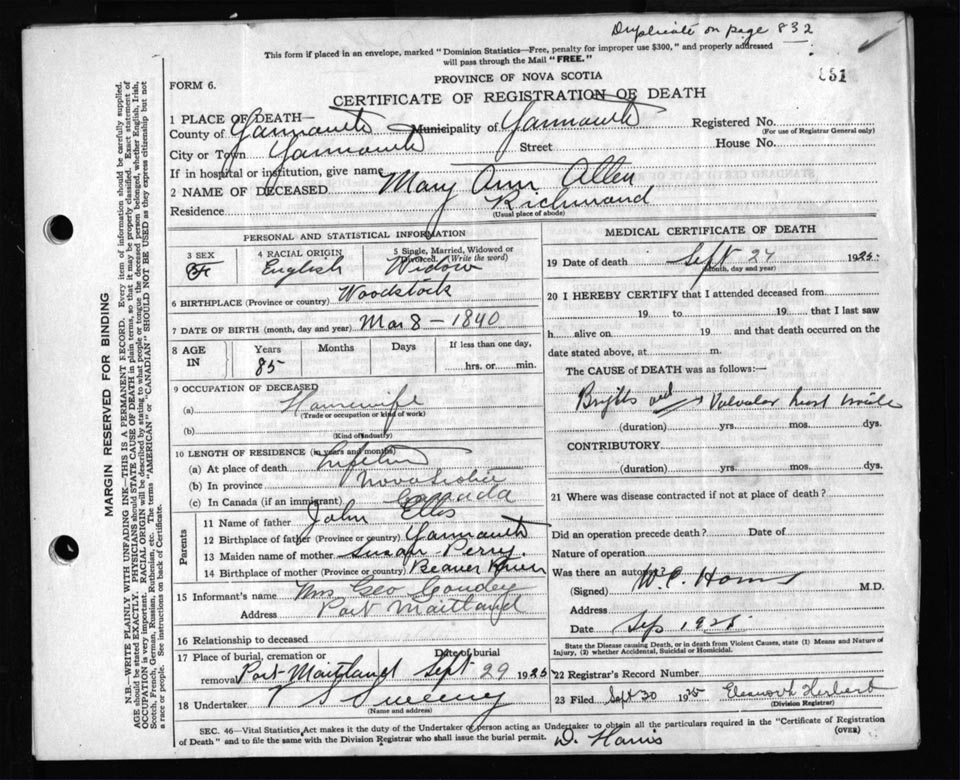 Duplicate on page 832
This form if placed in an envelope, marked "Dominion Statistics—Free, penalty for improper use $300," and properly addressed
will pass through the Mail "FREE."
PROVINCE OF NOVA SCOTIA
FORM 6.
CERTIFICATE OF REGISTRATION OF DEATH
1 PLACE OF DEATH—
County of Yarmouth Municipality of Yarmouth Registered No.
(For use of Registrar General only)
City or Town Yarmouth Street House No.
If in hospital or institution, give name
2 NAME OF DECEASED Mary Ann Allen
Residence Richmond
(Usual place of abode)
PERSONAL AND STATISTICAL INFORMATION
3 SEX 4 RACIAL ORIGIN 5 Single, Married, Widowed or Divorced. (Write the word)
F English Widow
6 BIRTHPLACE (Province or country) Woodstock
7 DATE OF BIRTH (month, day and year) Mar 8 - 1840
8 AGE IN Years Months Days If less than one day,
85 hrs. or min.
9 OCCUPATION OF DECEASED
(a) Housewife
(Trade or occupation or kind of work)
(b)
(Kind of industry)
10 LENGTH OF RESIDENCE (in years and months)
(a) At place of death Lifetime
(b) In province Nova Scotia
(c) In Canada (if an immigrant) Canada
Parents
11 Name of father John Ellis
12 Birthplace of father (Province or country) Yarmouth
13 Maiden name of mother Susan Perry.
14 Birthplace of mother (Province or country) Beaver River
15 Informant's name Mrs Geo Goudey
Address Port Maitland
16 Relationship to deceased
17 Place of burial, cremation or Date of burial
removal Port Maitland Sept 29 1925
18 Undertaker Sweeny
(Name and address)
MEDICAL CERTIFICATE OF DEATH
19 Date of death Sept 27 1925
(Month, day and year)
20 I HEREBY CERTIFY that I attended deceased from
19 to 19 that I last saw
h alive on 19 and that death occurred on the
date stated above, at m.
The CAUSE of DEATH was as follows:—
Brights and Valvular heart
(duration) yrs. mos. dys.
CONTRIBUTORY
(duration) yrs. mos. dys.
21 Where was disease contracted if not at place of death?
Did an operation precede death? Date of
Nature of operation
Was there an autopsy?
(Signed) M.D.
Address
Date Sep 1925
State the Disease causing Death, or in death from Violent Causes, state (1) Means and Nature of
Injury, (2) whether Accidental, Suicidal or Homicidal.
22 Registrar's Record Number
23 Filed Sept 30 1925 Herbert
(Division Registrar)
SEC. 46—Vital Statistics Act makes it the duty of the Undertaker or person acting as Undertaker to obtain all the particulars required in the "Certificate of Registration
of Death" and to file the same with the Division Registrar who shall issue the burial permit.
(OVER)
D. Harris
MARGIN RESERVED FOR BINDING
N.B.—WRITE PLAINLY WITH UNFADING INK—THIS IS A PERMANENT RECORD. Every item of information should be carefully supplied.
AGE should be stated EXACTLY. PHYSICIANS should STATE CAUSE OF DEATH in plain terms, so that it may be properly classified. Exact statement of
OCCUPATION is very important. RACIAL ORIGIN will be described by stating to what people or tongue the deceased person belonged, whether English, Irish,
Scotch, French, German, Russian, Ruthenian, etc. The terms "AMERICAN" or "CANADIAN" SHOULD NOT BE USED as they express citizenship but not
a race or people. See instructions on back of Certificate.